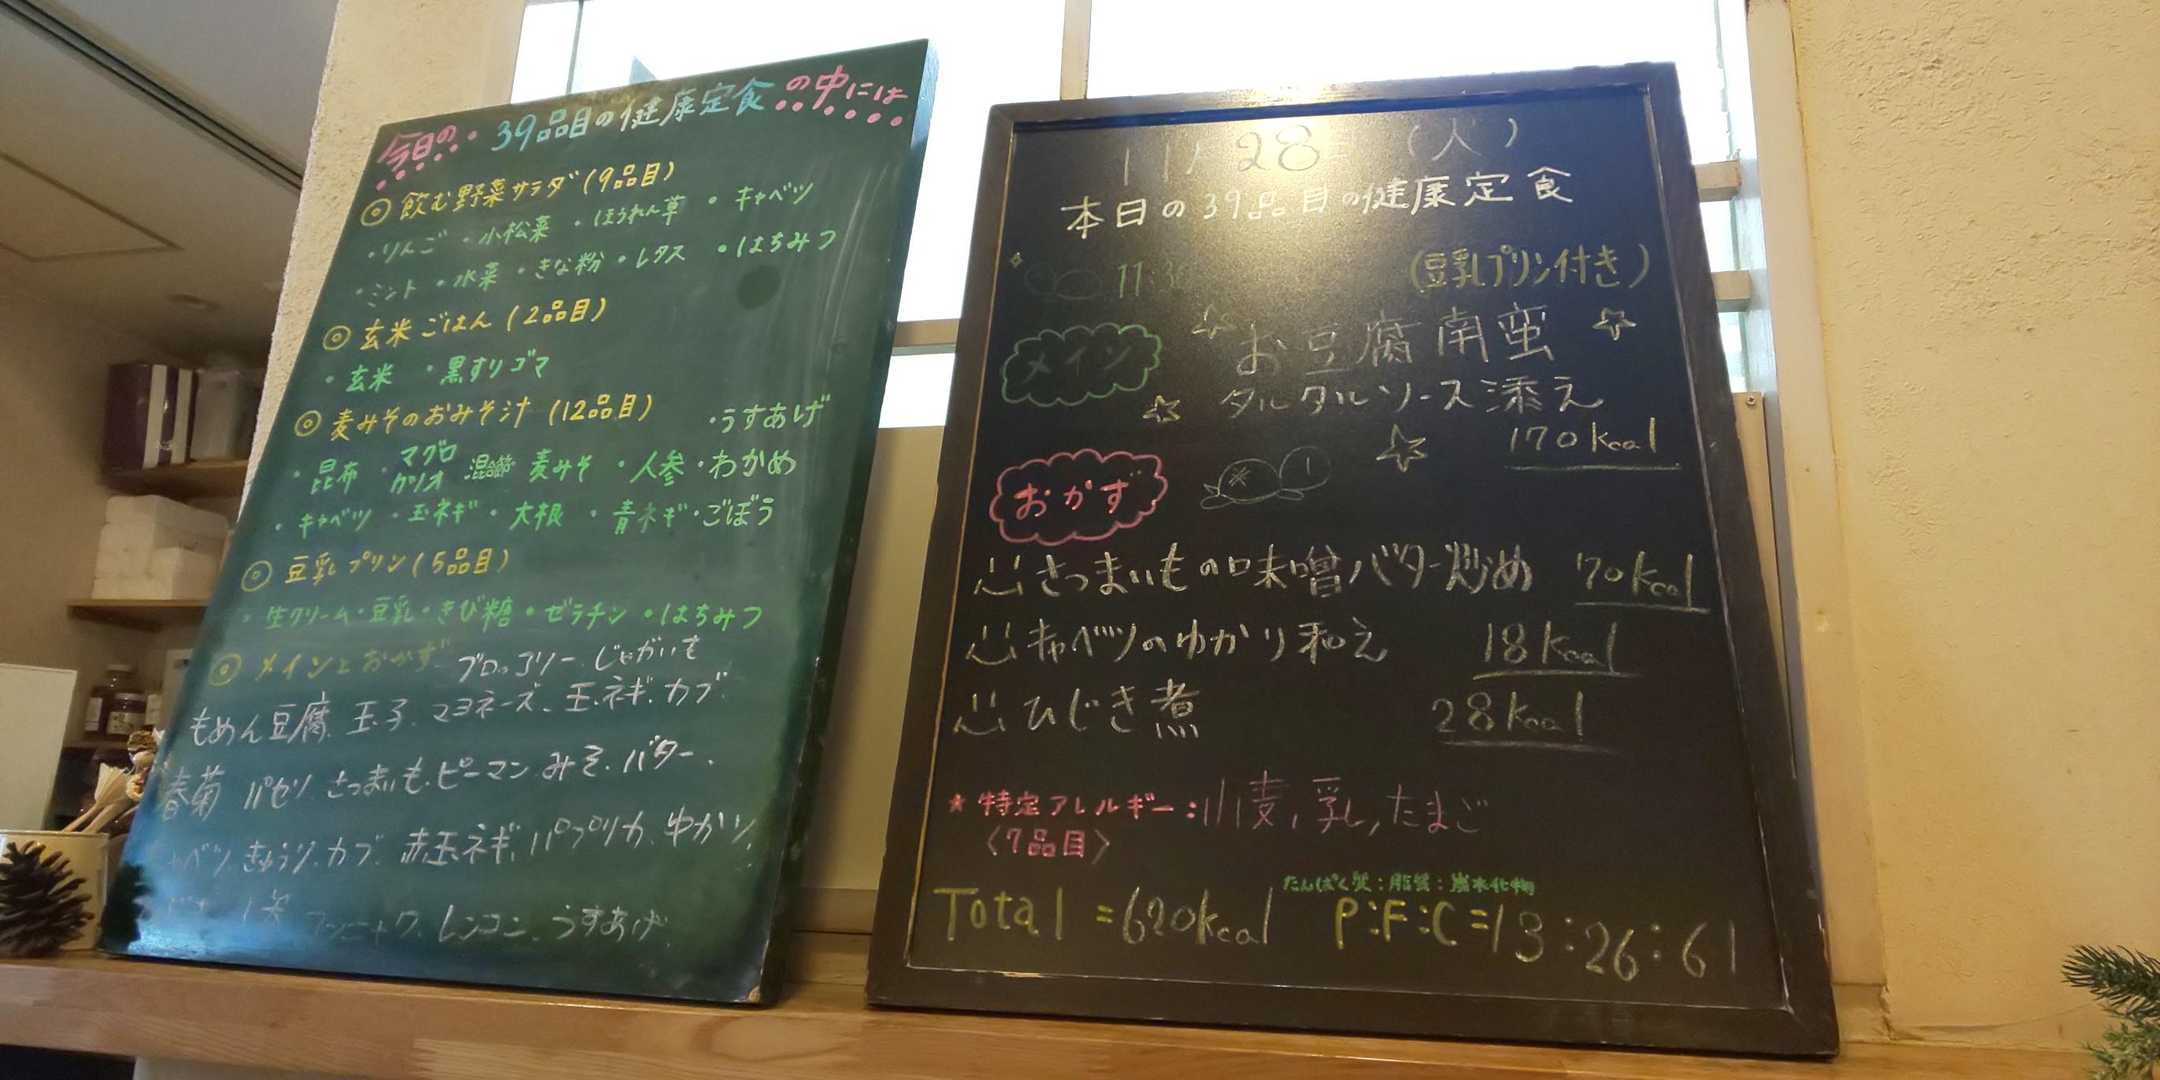 今日の 39品目の健康定食 の中には
◎ 飲む野菜サラダ (9品目)
・りんご ・小松菜 ・ほうれん草 ・キャベツ
・ミント ・水菜 ・きな粉 ・レタス ・はちみつ
◎ 玄米ごはん (2品目)
・玄米 ・黒すりゴマ
◎ 麦みそのおみそ汁 (12品目) ・うすあげ
・昆布 ・マグロ 麦みそ ・人参 ・わかめ
・キャベツ ・玉ネギ ・大根 ・青ネギ ・ごぼう
◎ 豆乳プリン (5品目)
・生クリーム ・豆乳 ・きび糖 ・ゼラチン ・はちみつ
◎ メインとおかず ブロッコリー、じゃがいも
もめん豆腐、玉子、マヨネーズ、玉ネギ、カブ
春菊 パセリ、さつまいも、ピーマン みそ、バター、
キャベツ、きゅうり、カブ、赤玉ネギ、パプリカ、ゆかり、
レンコン、うすあげ
11/28 (火)
本日の39品目の健康定食
(豆乳プリン付き)
メイン
☆ お豆腐南蛮 ☆
☆ タルタルソース添え
☆ 170kcal
おかず
さつまいもの味噌バター炒め 70kcal
キャベツのゆかり和え 18kcal
ひじき煮 28kcal
★ 特定アレルギー：小麦, 乳, たまご
〈7品目〉
たんぱく質：脂質：炭水化物
Total = 620kcal P:F:C=13:26:61